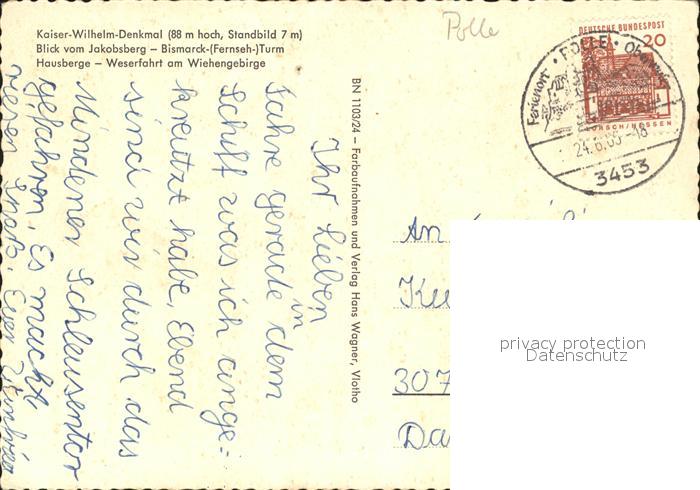 Kaiser-Wilhelm-Denkmal (88 m hoch, Standbild 7 m)
Blick vom Jakobsberg – Bismarck-(Fernseh-)Turm
Hausberge – Weserfahrt am Wiehengebirge
Polle
DEUTSCHE BUNDESPOST
20
LORSCH/HESSEN
Ferienort · POLLE · Oberweser
24.6.65-18
3453
BN 1103/24 – Farbaufnahmen und Verlag Hans Wagner, Vlotho
Ihr Lieben
Fahre gerade in dem
Schiff was ich ange=
kreutzt habe, Ebend
sind wir durch das
Mindener Schleusentor
gefahren. Es macht
riesen Spaß. Euer
An
307
privacy protection
Datenschutz